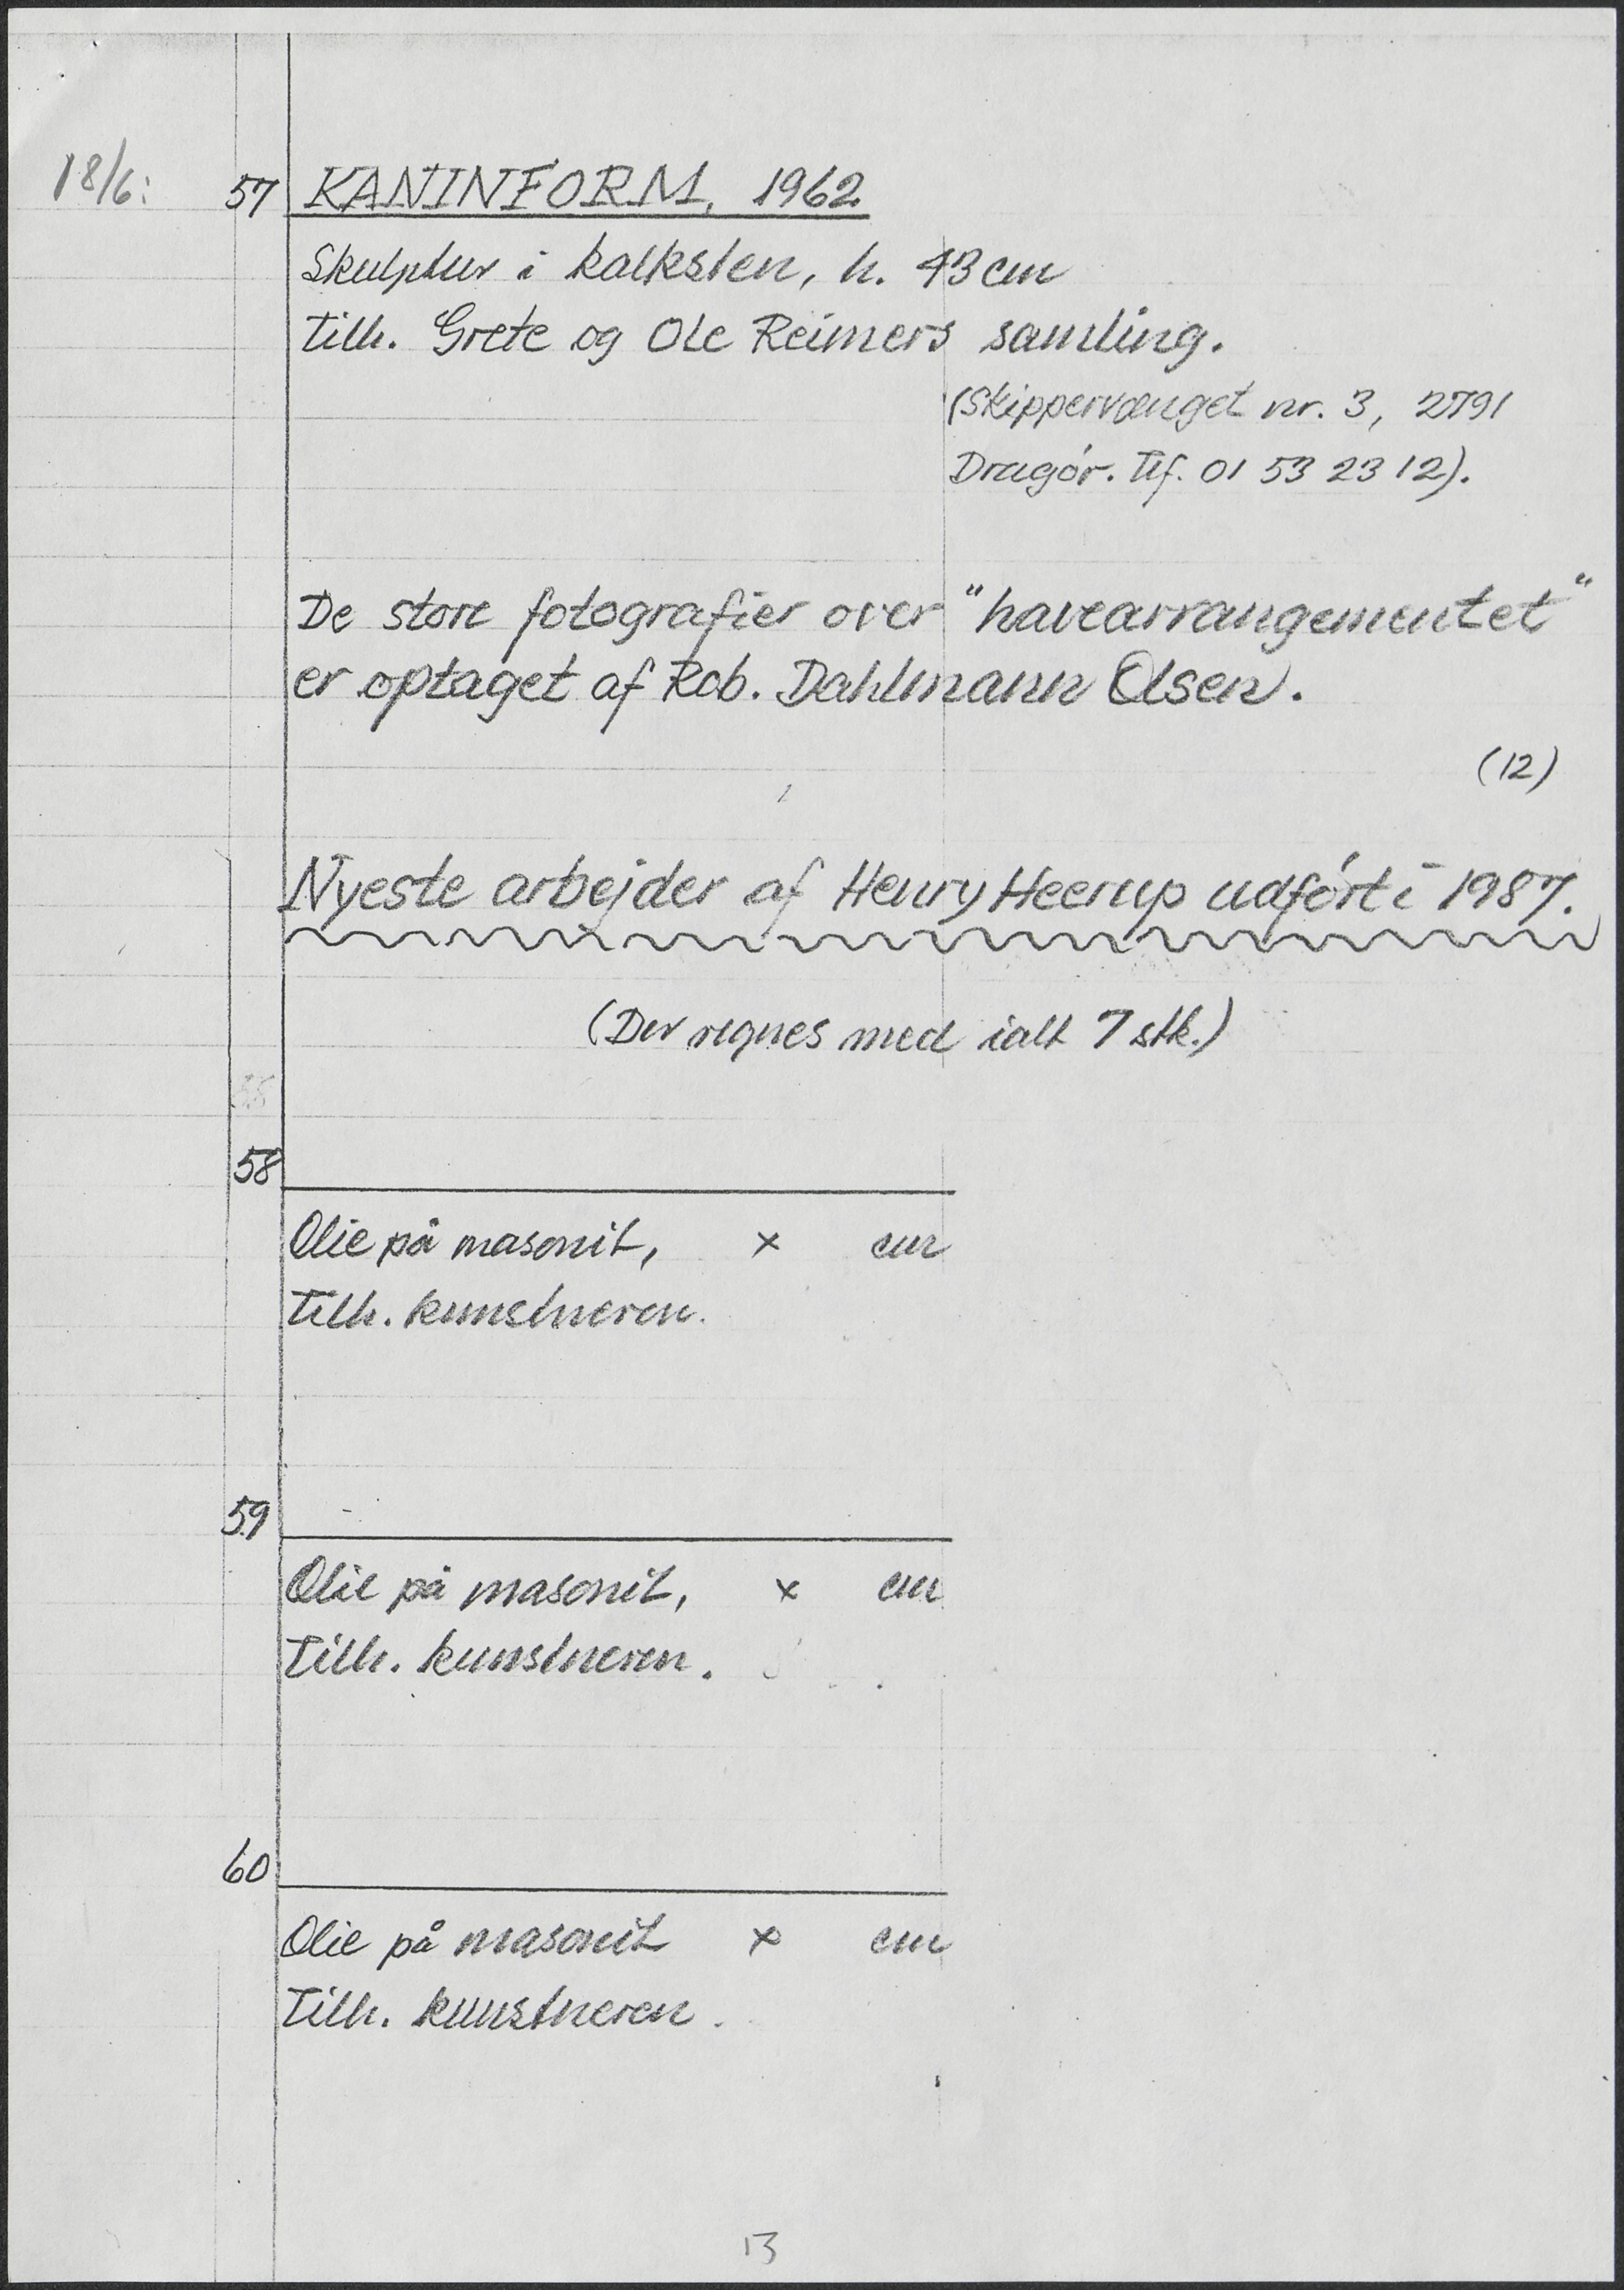 18/6: 57 KANINFORM, 1962
Skulptur i kalksten, h. 43 cm
Tilh. Grete og Ole Reimers samling.
(Skippervænget nr. 3, 2791
Dragór. Tlf. 01 53 23 12).
De store fotografier over "havearrangementet"
er optaget af Rob. Dahlmann Olsen.
(12)
Nyeste arbejder af Henry Heerup udfórt i 1987.
(Der regnes med ialt 7 stk.)
58
Olie på masonit, x cm
Tilh. kunstneren.
59
Olie på masonit, x cm
Tilh. kunstneren.
60
Olie på masonit x cm
Tilh. kunstneren.
13